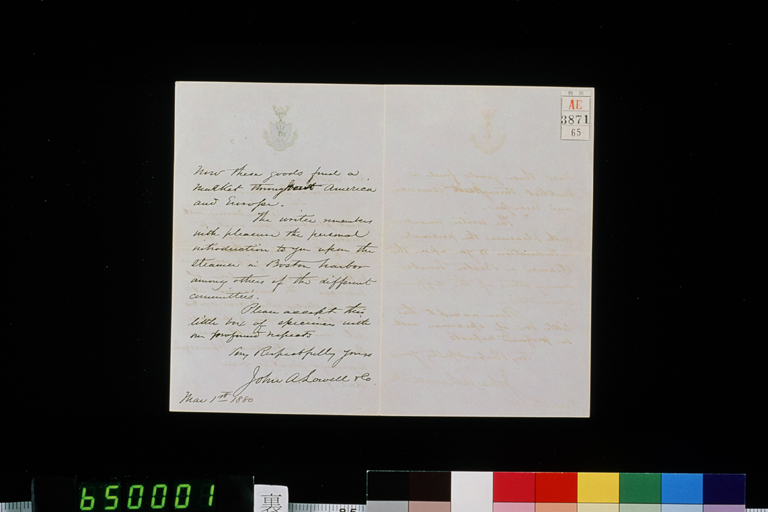 Now these goods find a
market throughout America
and Europe.
The writer remembers
with pleasure the personal
introduction to you upon the
steamer in Boston harbor
among others of the different
committees.
Please accept this
little box of specimens with
our profound respects
Very Respectfully yours
John A Lowell & Co
Mar 1st 1880
AE
3871
65
650001
裏
85